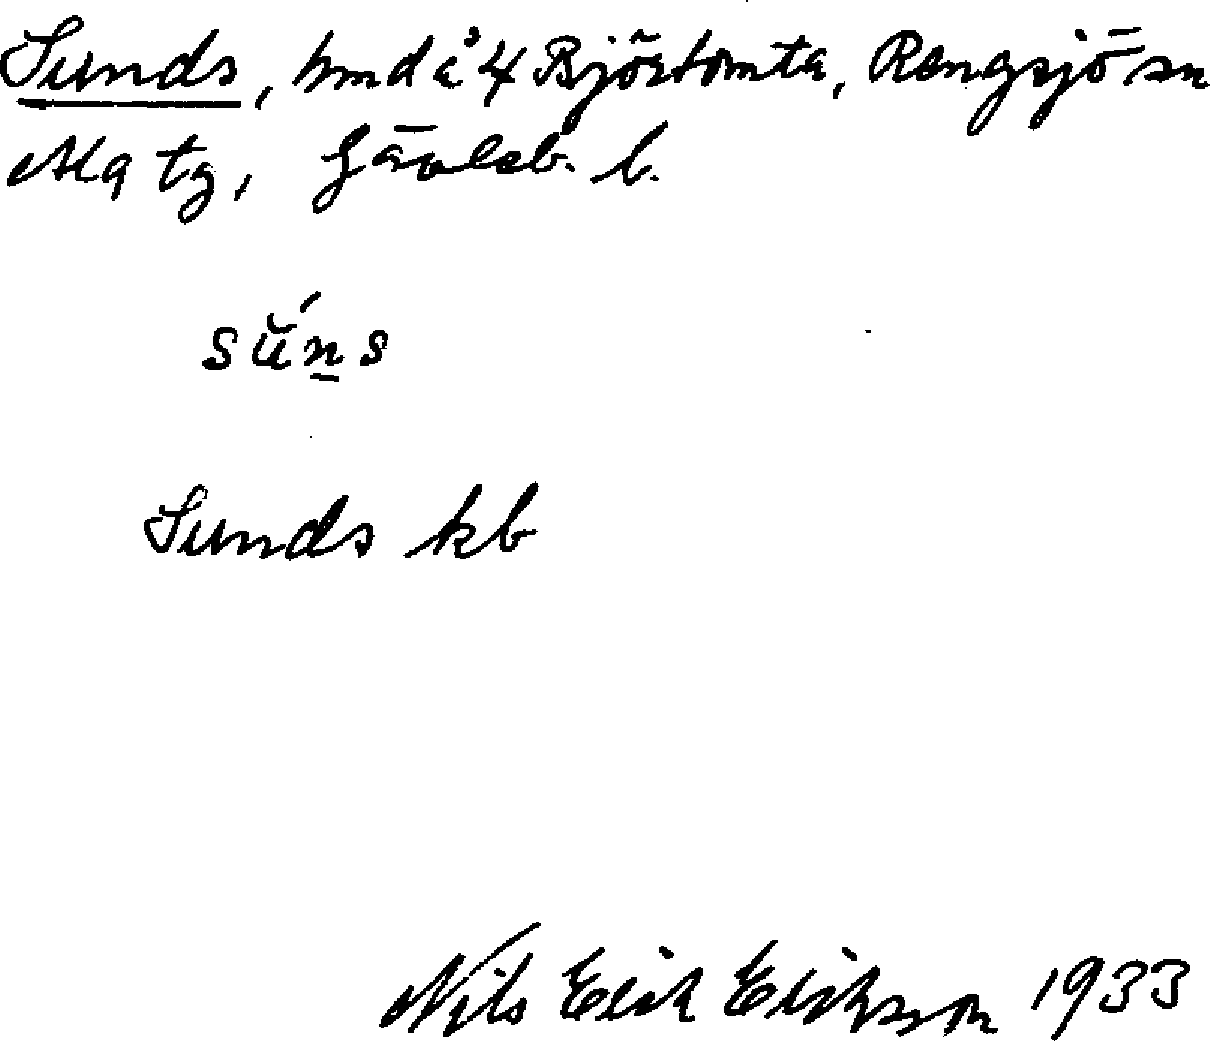 Sunds, hmd å 4 Björtomta, Rengsjö sn
Ala tg, Gävleb. l.
sŭ́n̲s
Sunds kb
Nils Erik Eriksson 1933